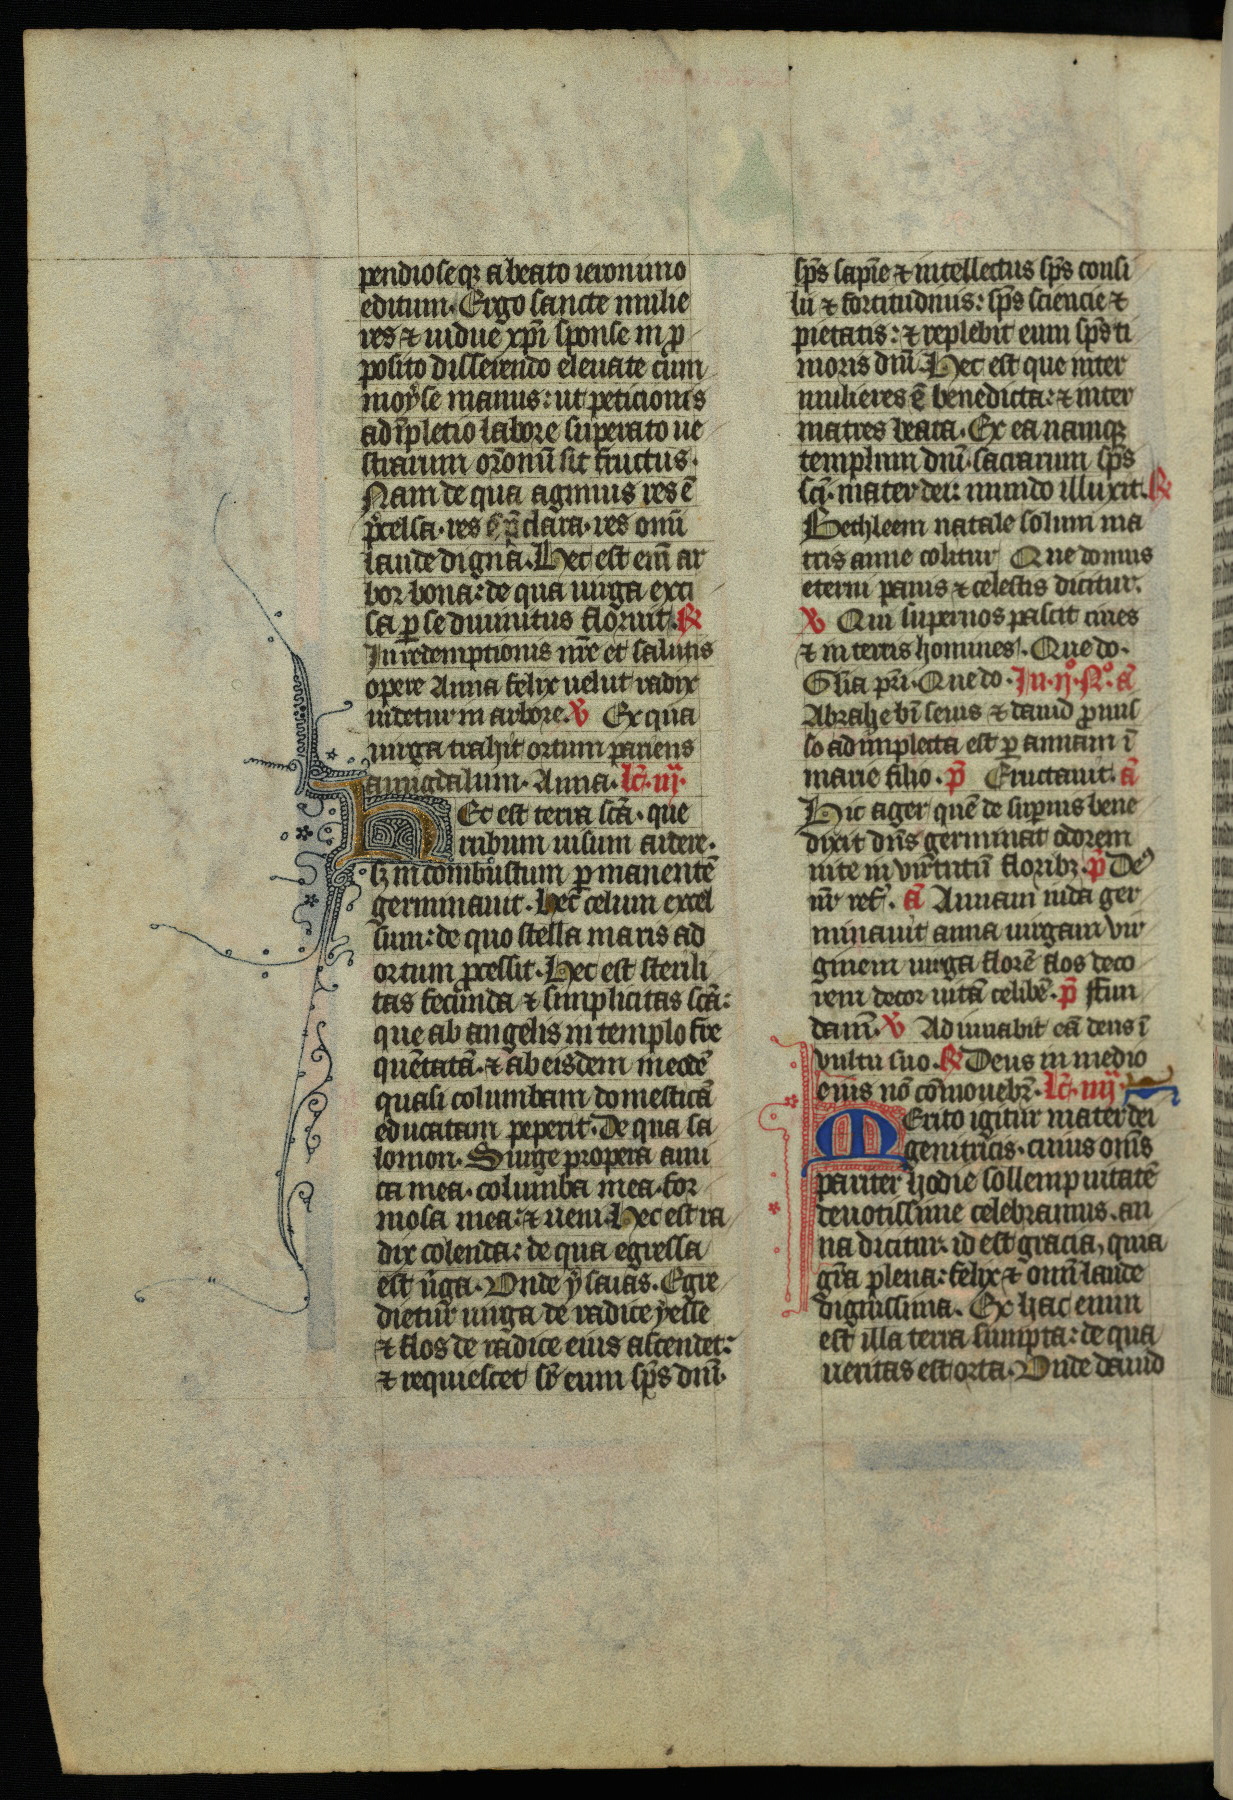 pendioseqꝫ a beato ieronimo
editum. Ergo sancte mulie
res ⁊ uidue xp̄i sponse in ꝓ
posito disserendo eleuate cum
moẏse manus: ut peticionis
ad īpletio labore superato ue
strarum or̄onū sit fructus.
Nam de qua agimus res ē
p̄celsa. res p̄clara. res omī
laude digna. Hec est em̄ ar
bor bona: de qua uirga exci
sa ꝑ se diuinitus floruit. ℟
In redemptionis nr̄e et salutis
opere Anna felix uelut radix
uidetur in arbore. ℣ Ex qua
uirga trahit ortum pariens
amigdalum. Anna. lc̄. iij.
Hec est terra sc̄a. que
rubum uisum ardere.
sꝫ incombustum ꝑmanentē
germinauit. Hec celum excel
sum: de quo stella maris ad
ortum ꝓcessit. Hec est sterili
tas fecunda ⁊ simplicitas sc̄a:
que ab angelis in templo fre
quētatā. ⁊ ab eisdem inedē
quasi columbam domesticā
educatam peperit. De qua sa
lomon. Surge propera ami
ca mea. columba mea. for
mosa mea: ⁊ ueni. Hec est ra
dix colenda: de qua egressa
est ūga. Vnde ẏsaias. Egre
dietur uirga de radice ẏesse
⁊ flos de radice eius ascendet:
⁊ requiescet sꝑ eum sp̄s dnī.
sp̄s sapīe ⁊ intellectus sp̄s consi
lii ⁊ fortitudinis: sp̄s sciencie ⁊
pietatis: ⁊ replebit eum sp̄s ti
moris dnī. Hec est que inter
mulieres ē benedicta: ⁊ inter
matres beata. Ex ea namqꝫ
templum dnī. sacrarum sp̄s
sc̄i. mater dei: mundo illuxit. ℟
Bethleem natale solum ma
tris anne colitur Que domus
eterni panis ⁊ celestis dicitur.
℣ Qui supernos pascit ciues
⁊ in terris homines. Que do.
Glīa pr̄i. Que do. In. ij.° N.° ā
Abrahe bn̄ senis ⁊ dauid ꝓmis
so adimpleta est ꝑ annam ī
marie filio. p̄ Eructauit. ā
Hic ager quē de suꝑnis bene
dixit dn̄s germinat odorem
uite in virtutū floribꝫ. p̄ De⁹
nr̄ ref. ā Annam nida ger
minauit anna uirgam vir
ginem uirga florē flos deco
rem decor uitā celibē. p̄ Fun
dam̄. ℣ Adiuuabit eā deus ī
vultu suo. ℟ Deus in medio
eius nō cōmouebr̄. lc̄. iiij
Merito igitur mater dei
genitricis. cuius om̄s
pariter hodie sollempnitatē
deuotissime celebramus. an
na dicitur. id est gracia, quia
grā plena: felix ⁊ omī laude
dignissima. Ex hac enim
est illa terra sumpta: de qua
ueritas est orta. Vnde dauid